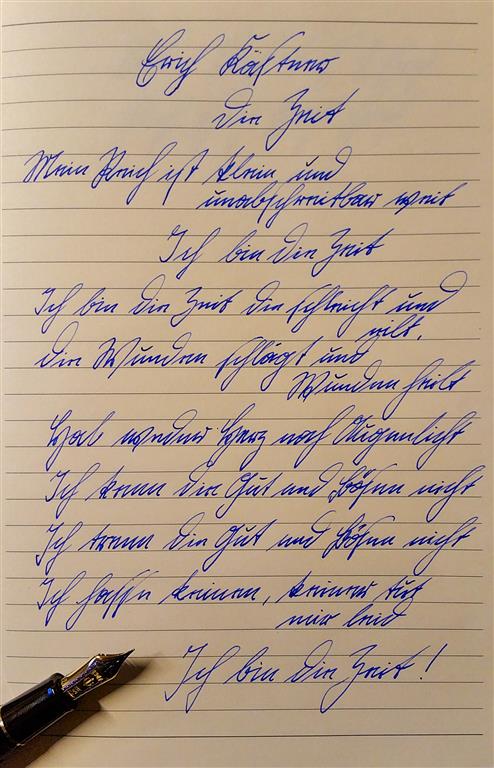 Erich Kästner
Die Zeit
Mein Reich ist klein und
unabschreitbar weit
Ich bin die Zeit
Ich bin die Zeit die schleicht und
eilt,
die Wunden schlägt und
Wunden heilt
Hab weder Herz noch Augenlicht
Ich kenn die Gut und Bösen nicht
Ich trenn die Gut und Bösen nicht
Ich hasse keinen, keiner tut
mir leid
Ich bin die Zeit!